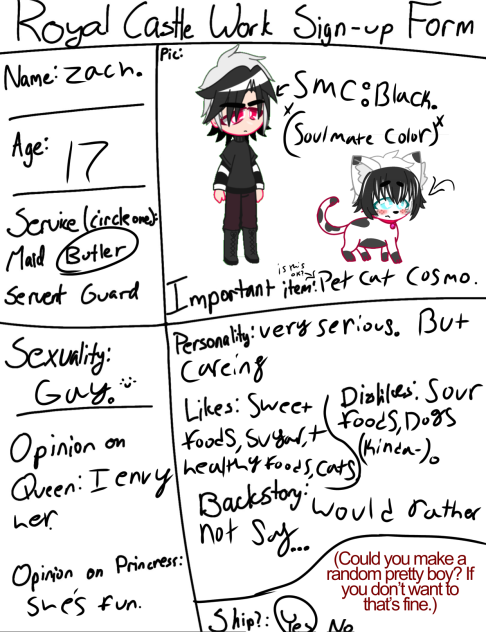 Royal Castle Work Sign-up Form
Name: Zach.
Age: 17
Service (circle one):
Maid Butler
Servent Guard
Pic:
SMC: Black.
x (Soulmate Color) x
is this ok?
Important item: Pet cat Cosmo.
Sexuality:
Gay. :)
Opinion on
Queen: I envy
her.
Opinion on Princress:
she's fun.
Personality: very serious. But
careing
Likes: Sweet
foods, Sugar, +
healthy foods, cats
Dislikes: Sour
foods, Dogs
(kinda-).
Backstory: would rather
not say...
(Could you make a
random pretty boy? If
you don't want to
that's fine.)
Ship?: Yes No